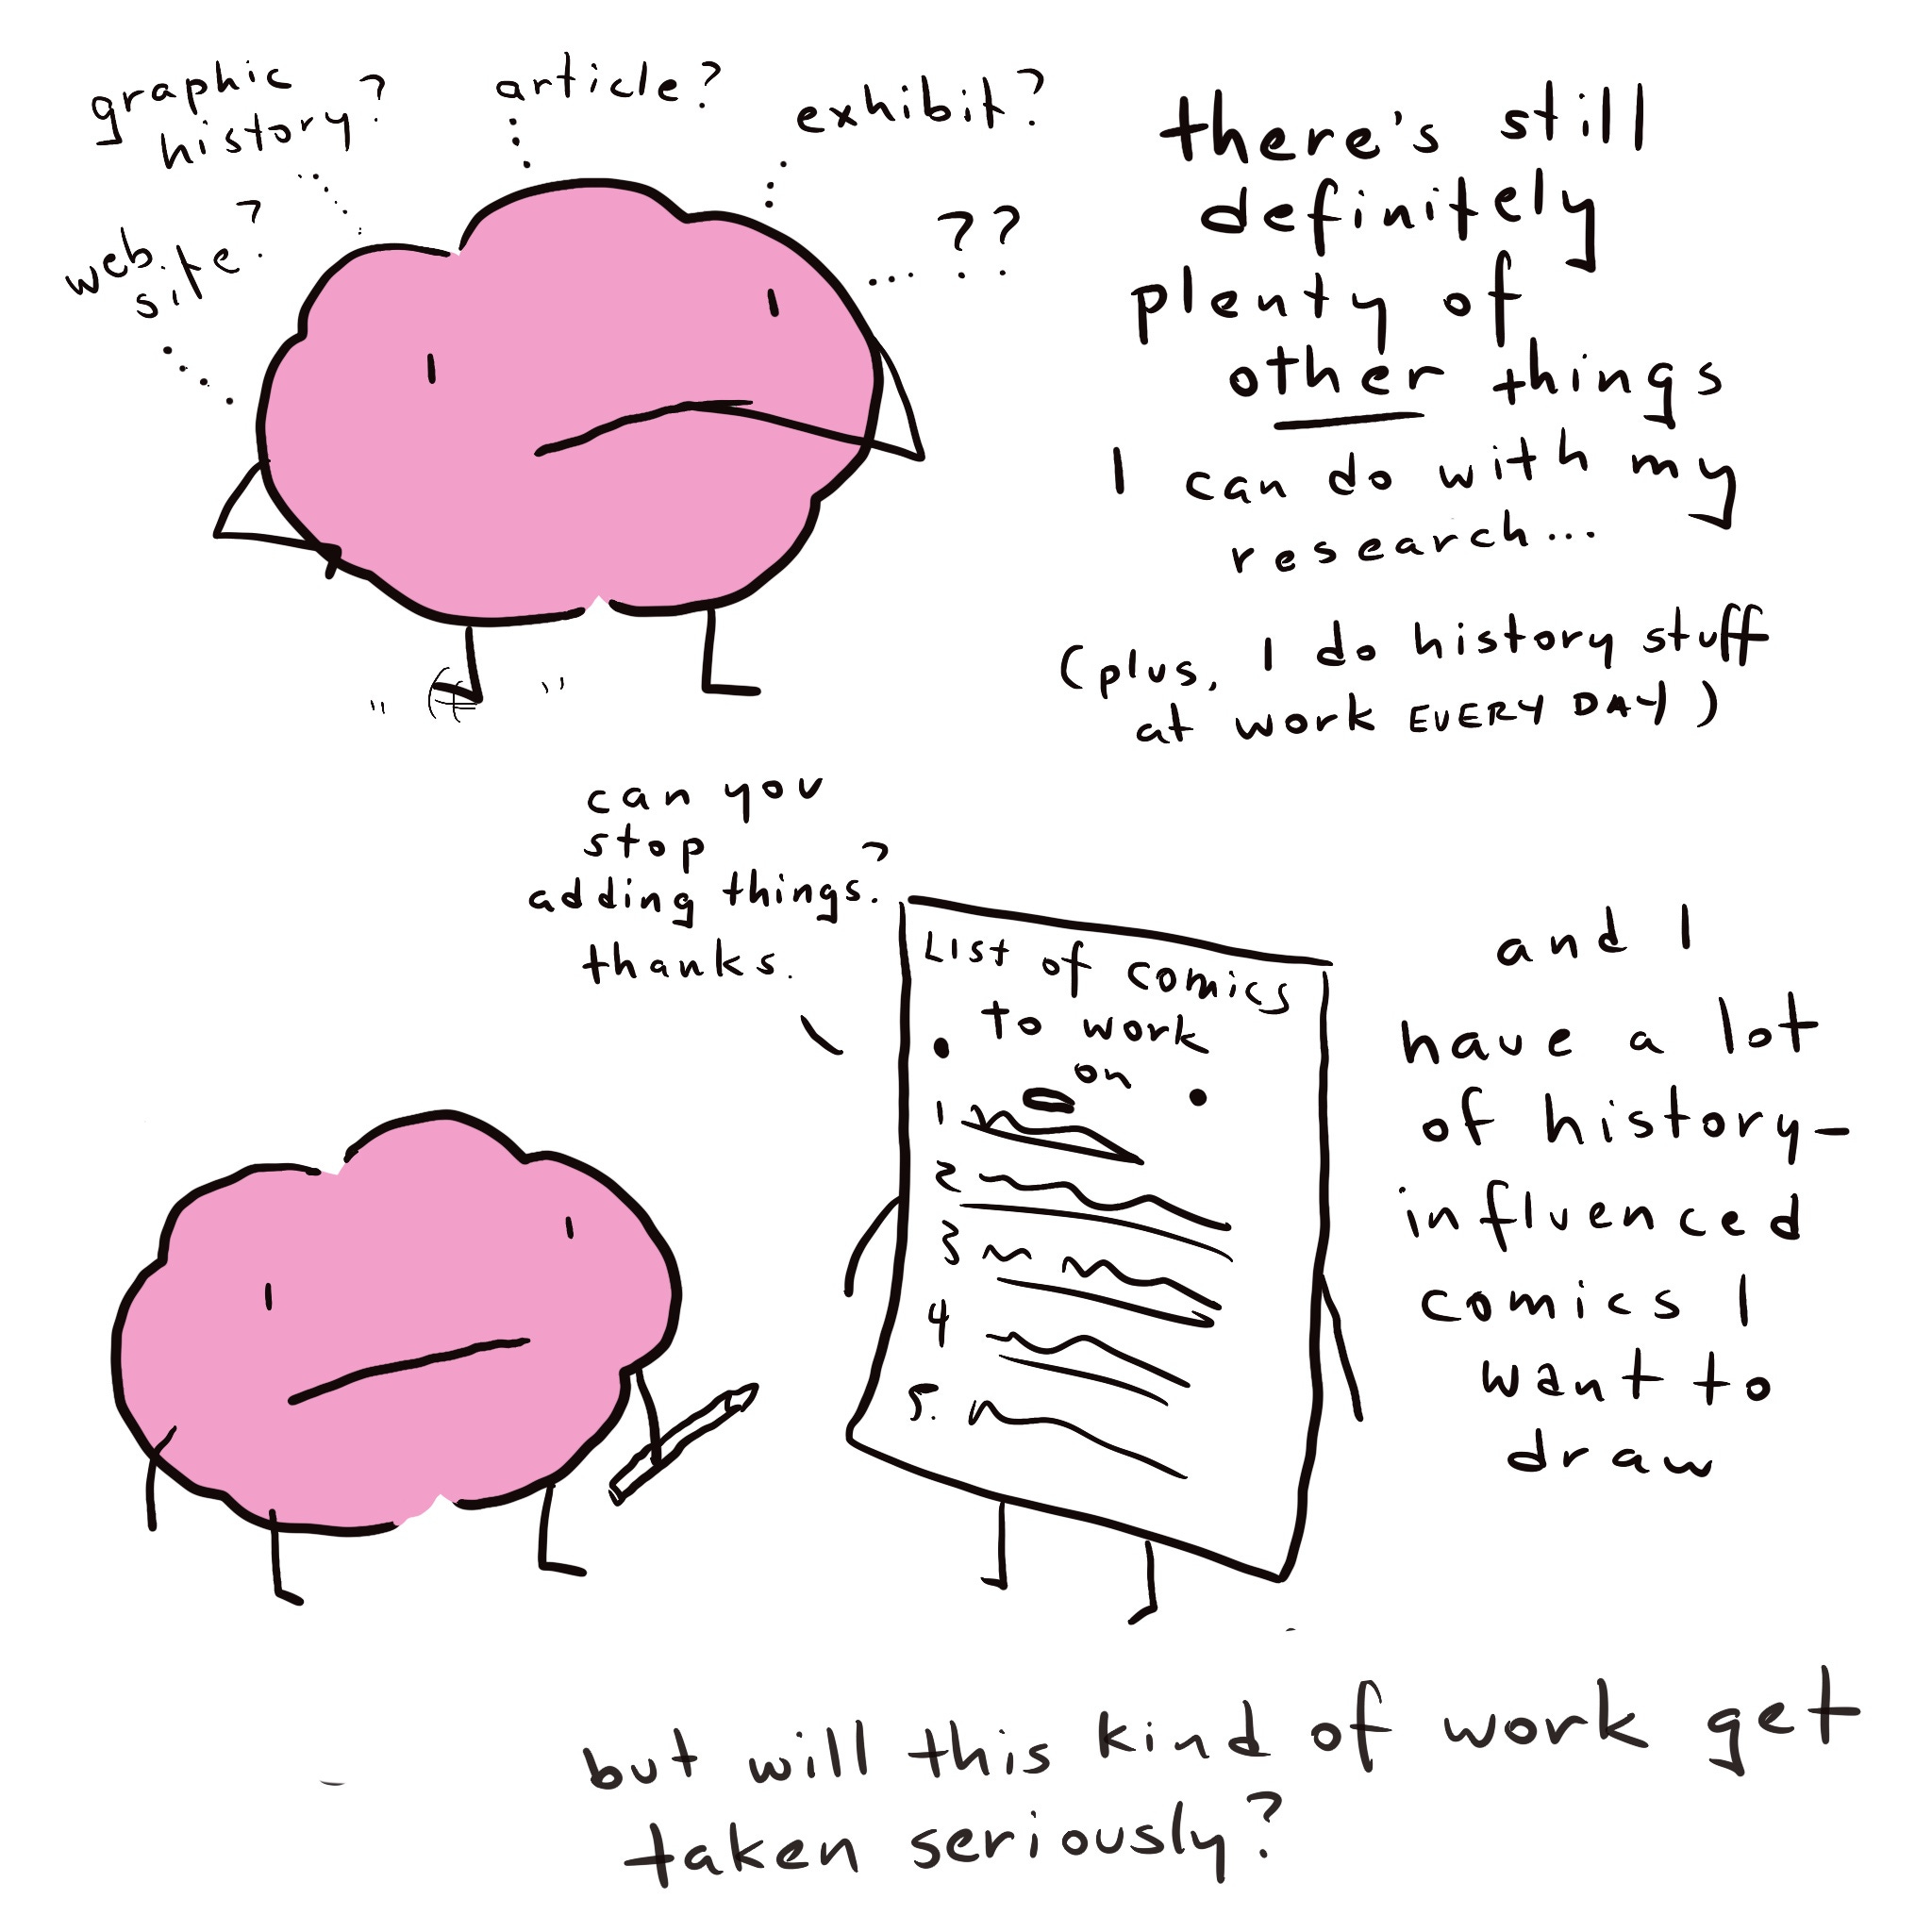 graphic
history?
article?
exhibit?
web
site?
??
there's still
definitely
plenty of
other things
I can do with my
research...
(plus, I do history stuff
at work EVERY DAY)
can you
stop
adding things?
thanks.
List of comics
to work
on
1
2
3
4
5.
and I
have a lot
of history-
influenced
comics I
want to
draw
but will this kind of work get
taken seriously?